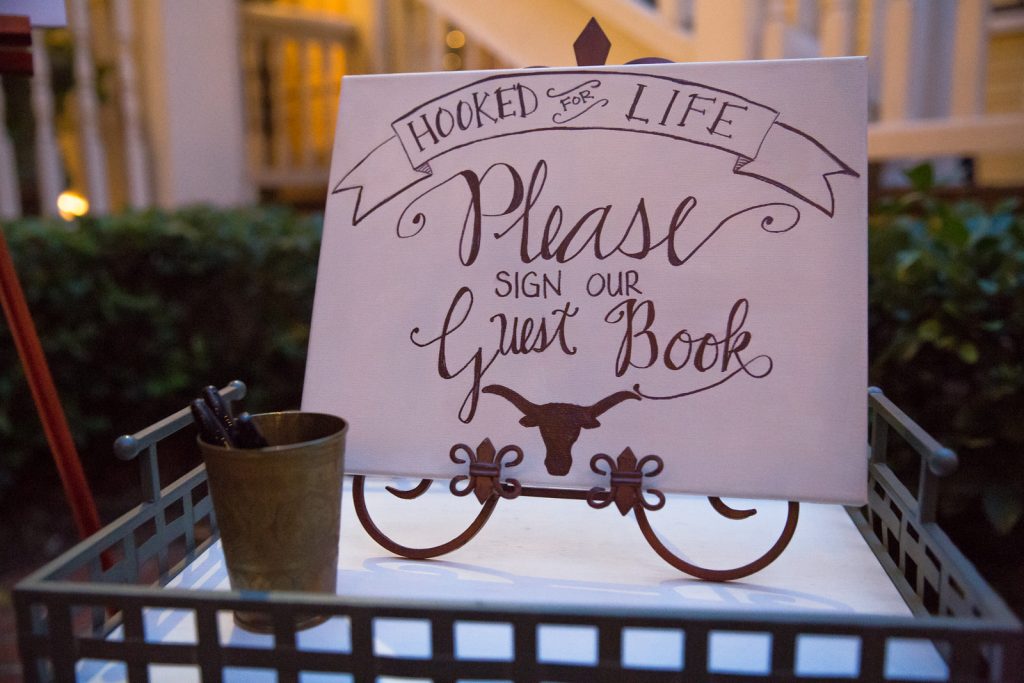 HOOKED FOR LIFE
Please
SIGN OUR
Guest Book